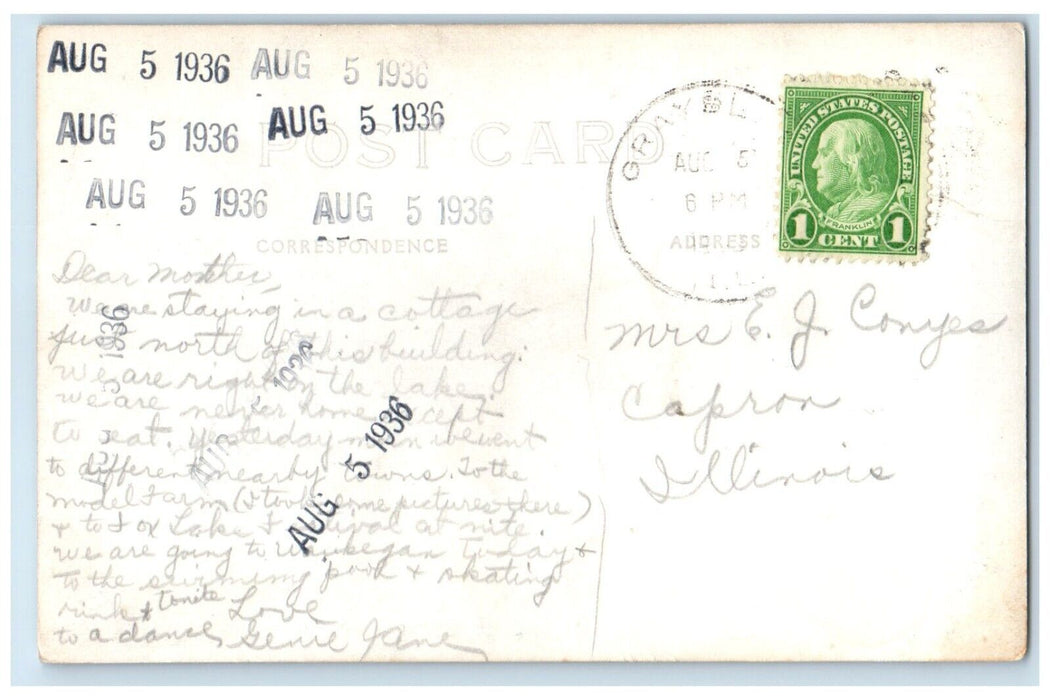 AUG 5 1936 AUG 5 1936
AUG 5 1936 AUG 5 1936
AUG 5 1936 AUG 5 1936
POST CARD
CORRESPONDENCE
ADDRESS
GRAYSL
AUG 5
6 PM
1936
ILL.
UNITED STATES POSTAGE
FRANKLIN
1 CENT 1
Dear Mother,
We are staying in a cottage
just north of this building.
We are right on the lake.
We are never home except
to eat. Yesterday we went
to different nearby towns. To the
model Farm (I took some pictures there)
& to Fox Lake Festival at nite.
We are going to Waukegan today &
to the swimming pool & skating
rink & tonite
to a dance,
Love
Genie Jane
AUG 5 1936
AUG 5 1936
AUG 5 1936
Mrs E. J. Conyes
Capron
Illinois